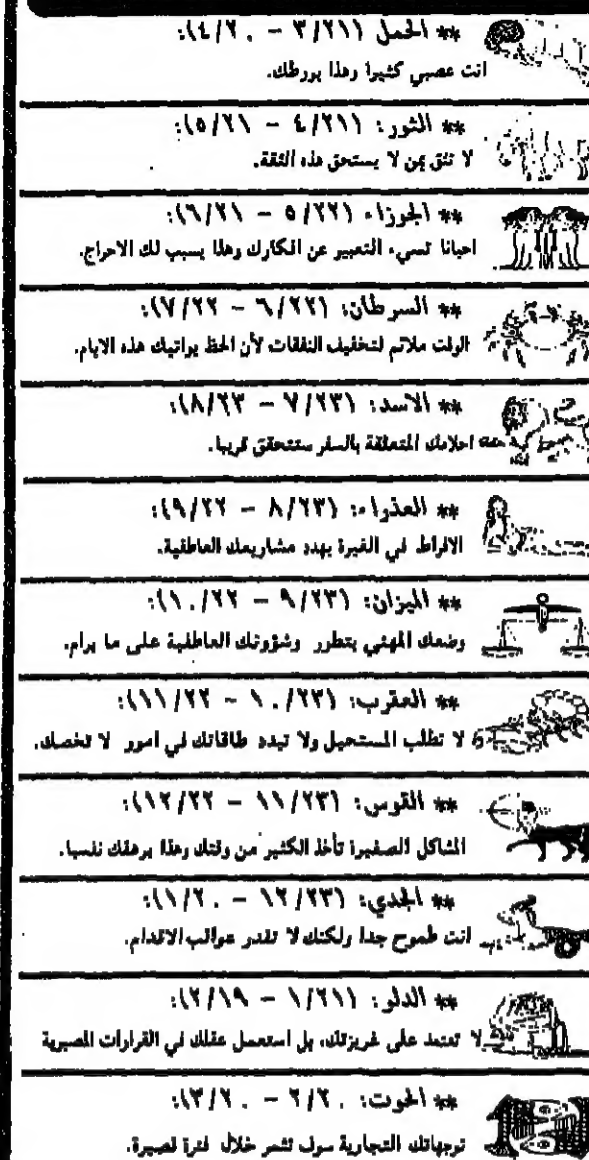 ** الحمل (٣/٢١ - ٤/٢٠):
انت عصبي كثيرا وهذا يورطك.
** الثور: (٤/٢١ - ٥/٢١):
لا تثق بمن لا يستحق هذه الثقة.
** الجوزاء (٥/٢٢ - ٦/٢١):
احيانا تسيء التعبير عن افكارك وهذا يسبب لك الاحراج.
** السرطان: (٦/٢٢ - ٧/٢٢):
الوقت ملائم لتخفيف النفقات لأن الحظ يواتيك هذه الايام.
** الاسد: (٧/٢٣ - ٨/٢٣):
احلامك المتعلقة بالسفر ستتحقق قريبا.
** العذراء: (٨/٢٣ - ٩/٢٢):
الافراط في الغيرة يهدد مشاريعك العاطفية.
** الميزان: (٩/٢٣ - ١٠/٢٢):
وضعك المهني يتطور وشؤونك العاطفية على ما يرام.
** العقرب: (١٠/٢٣ - ١١/٢٢):
لا تطلب المستحيل ولا تبدد طاقاتك في امور لا تخصك.
** القوس: (١١/٢٣ - ١٢/٢٢):
المشاكل الصغيرة تأخذ الكثير من وقتك وهذا يرهقك نفسيا.
** الجدي: (١٢/٢٣ - ١/٢٠):
انت طموح جدا ولكنك لا تقدر عواقب الاقدام.
** الدلو: (١/٢١ - ٢/١٩):
لا تعتمد على غريزتك، بل استعمل عقلك في القرارات المصيرية
** الحوت: ٢/٢٠ - ٣/٢٠):
توجهاتك التجارية سوف تثمر خلال فترة قصيرة.